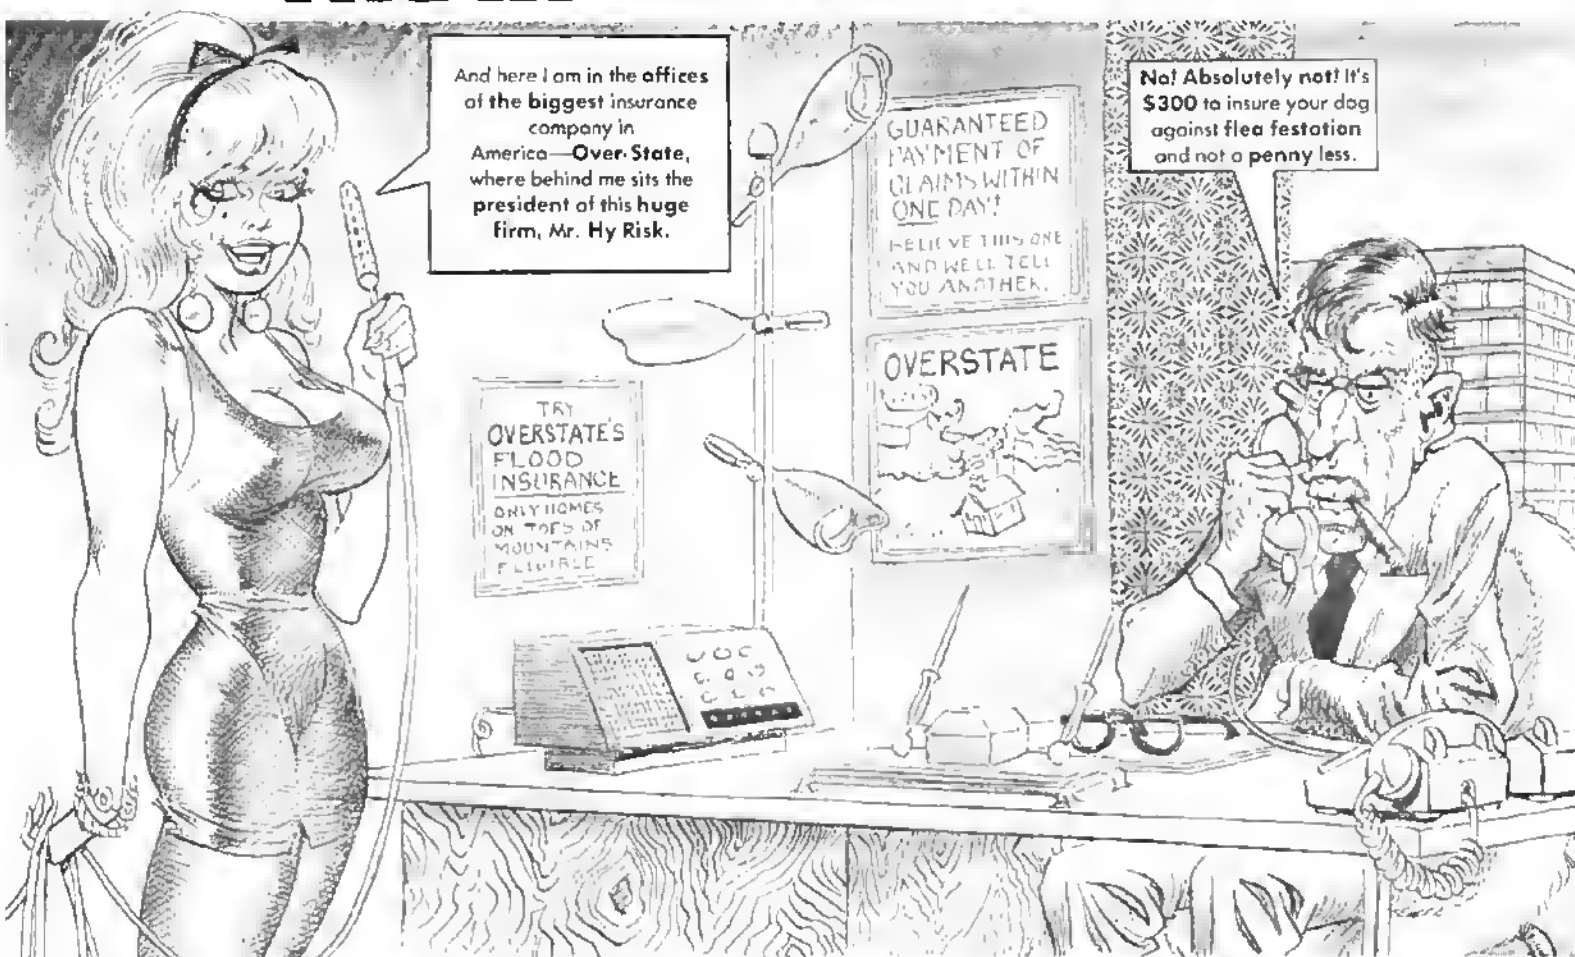 And here I am in the offices
of the biggest insurance
company in
America—Over-State,
where behind me sits the
president of this huge
firm, Mr. Hy Risk.
No! Absolutely not! It's
$300 to insure your dog
against flea festation
and not a penny less.
GUARANTEED
PAYMENT OF
CLAIMS WITHIN
ONE DAY!
BELIEVE THIS ONE
AND WE'LL TELL
YOU ANOTHER.
OVERSTATE
TRY
OVERSTATE'S
FLOOD
INSURANCE
ONLY HOMES
ON TOPS OF
MOUNTAINS
ELIGIBLE